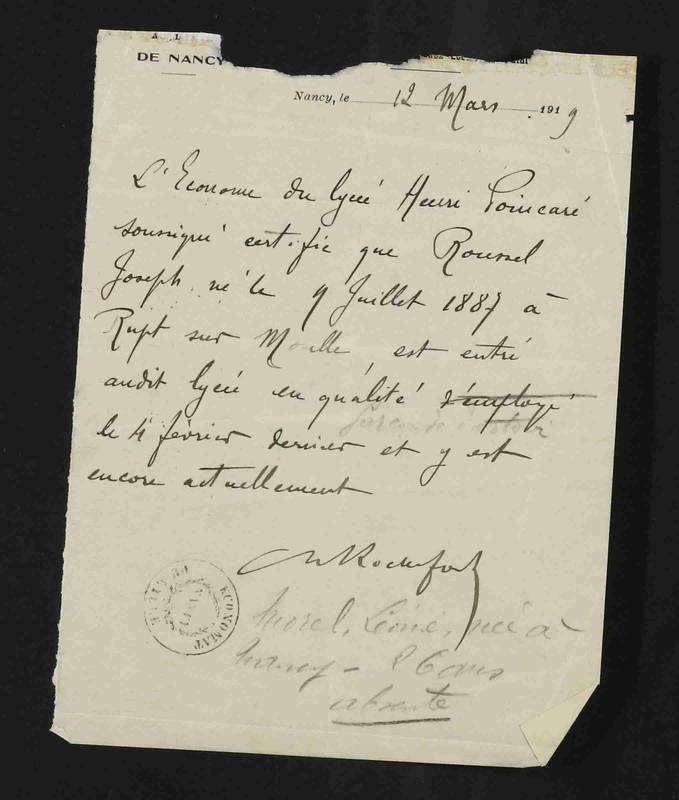 DE NANCY
Nancy, le 12 Mars 1919
L'Econome du lycée Henri Poincaré
soussigné certifie que Roussel
Joseph né le 9 Juillet 1887 à
Rupt sur Moselle, est entré
audit lycée en qualité d'employé
garçon de
le 4 février dernier et y est
encore actuellement
Rochefort
ECONOMAT DU LYCÉE
NANCY
Morel, Léonie, née à
Nancy - 26 ans
absente